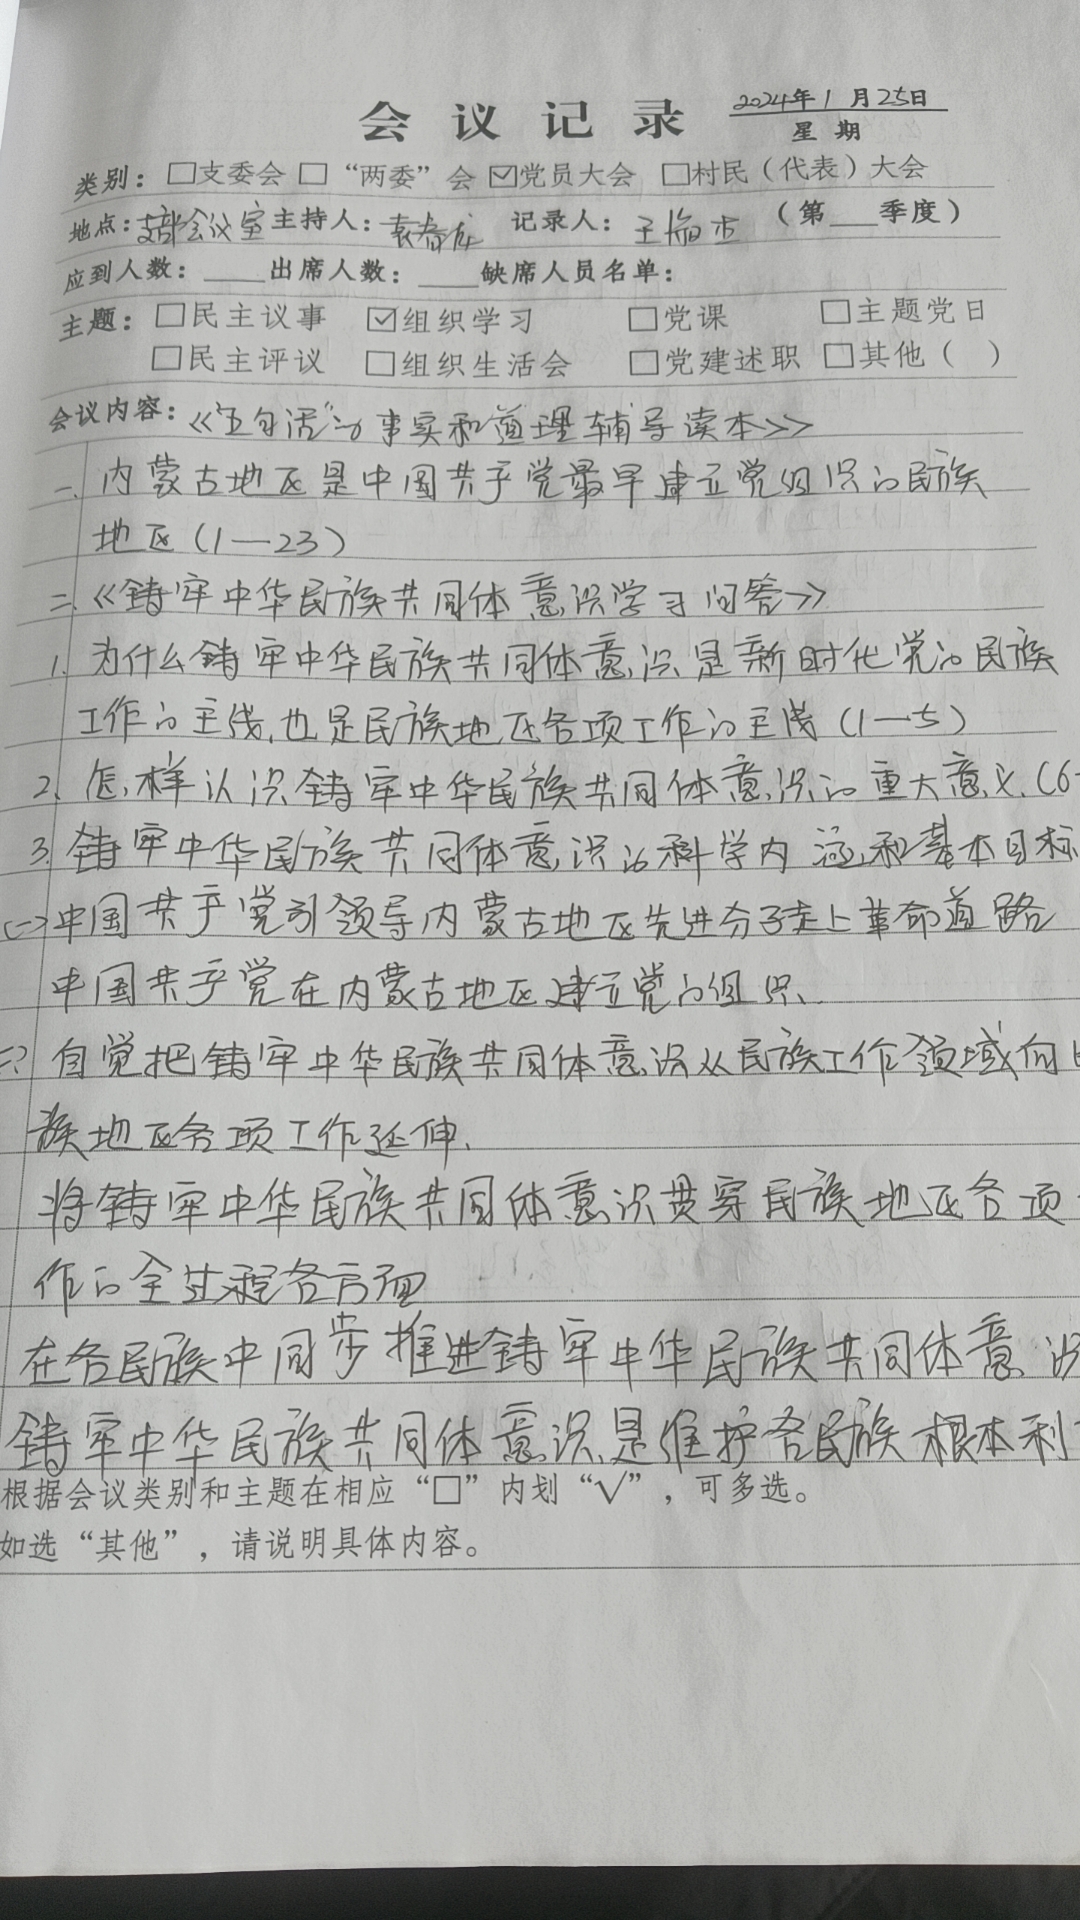 会议记录 2024年1月25日
星期
类别：□支委会 □“两委”会 ☑党员大会 □村民（代表）大会
地点：支部会议室 主持人：袁春龙 记录人：王 （第___季度）
应到人数：____出席人数：____缺席人员名单：
主题：□民主议事 ☑组织学习 □党课 □主题党日
□民主评议 □组织生活会 □党建述职 □其他（ ）
会议内容：《“五句话”的事实和道理辅导读本》
一、内蒙古地区是中国共产党最早建立党组织的民族
地区（1—23）
二、《铸牢中华民族共同体意识学习问答》
1、为什么铸牢中华民族共同体意识是新时代党的民族
工作的主线，也是民族地区各项工作的主线（1—5）
2、怎样认识铸牢中华民族共同体意识的重大意义、（6
3、铸牢中华民族共同体意识的科学内涵和基本目标
（一）中国共产党引领导内蒙古地区先进分子走上革命道路
中国共产党在内蒙古地区建立党的组织、
自觉把铸牢中华民族共同体意识从民族工作领域向
族地区各项工作延伸、
将铸牢中华民族共同体意识贯穿民族地区各项
作的全过程各方面
在各民族中同步推进铸牢中华民族共同体意识
铸牢中华民族共同体意识是维护各民族根本利
根据会议类别和主题在相应“□”内划“√”，可多选。
如选“其他”，请说明具体内容。